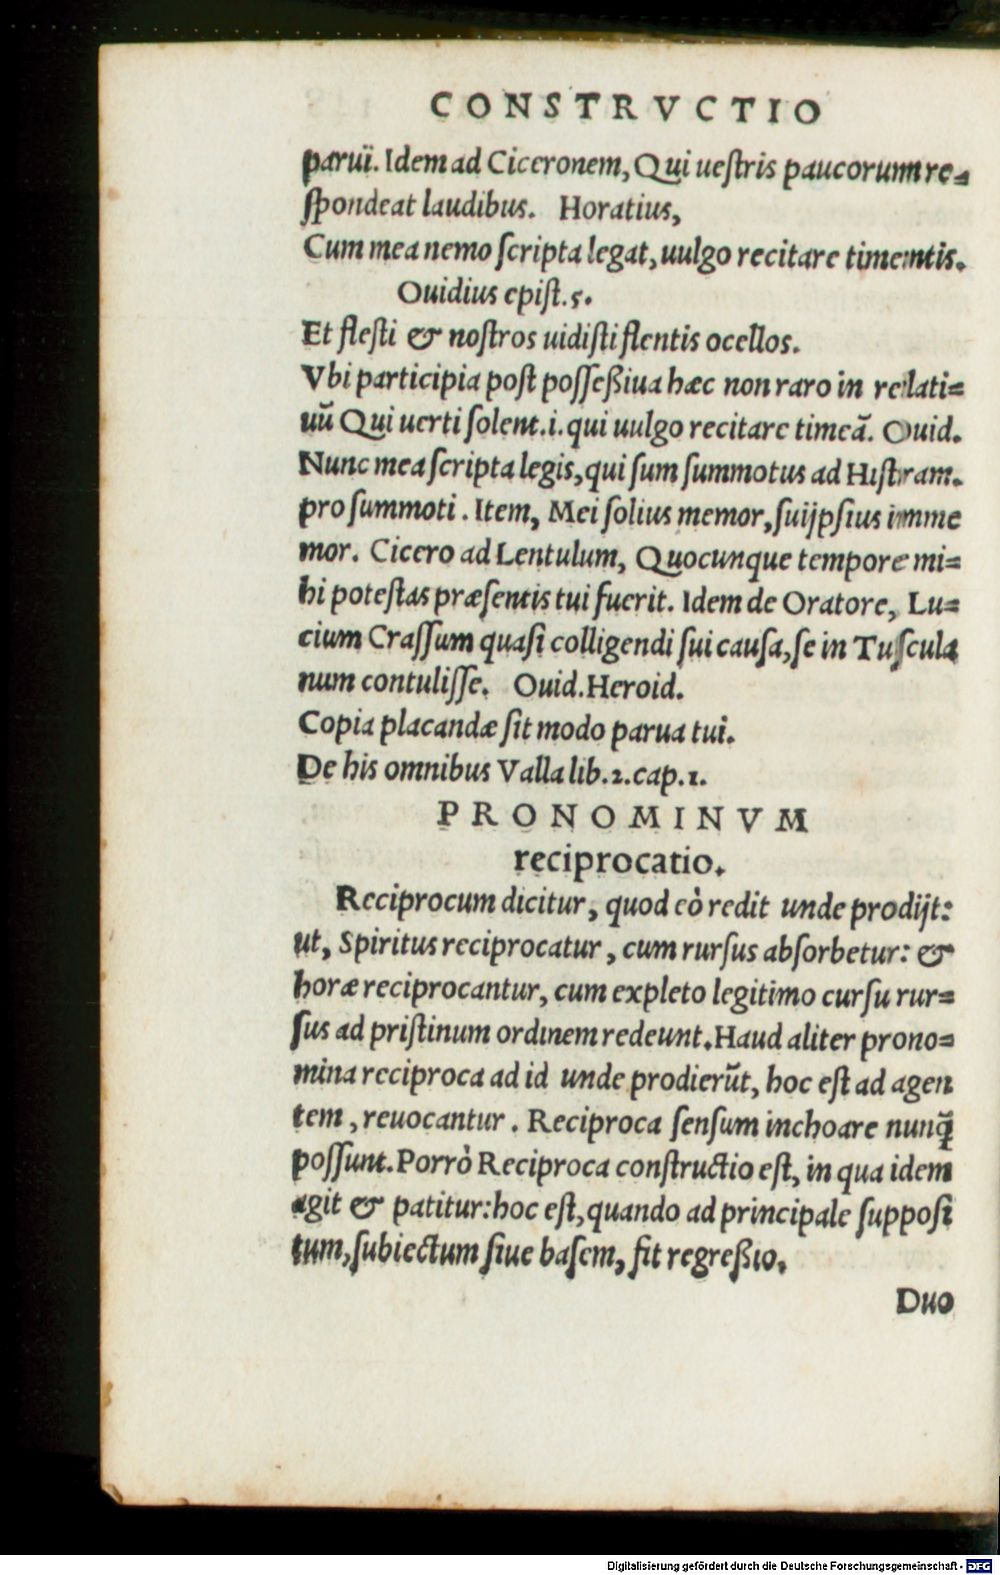 CONSTRVCTIO
paruï. Idem ad Ciceronem, Qui uestris paucorum re=
spondeat laudibus. Horatius,
Cum mea nemo scripta legat, uulgo recitare timentis.
Ouidius epist.5.
Et flesti & nostros uidisti flentis ocellos.
Vbi participia post posseßiua hæc non raro in relati=
uũ Qui uerti solent.i.qui uulgo recitare timeã. Ouid.
Nunc mea scripta legis, qui sum summotus ad Histram.
pro summoti. Item, Mei solius memor, suijpsius imme
mor. Cicero ad Lentulum, Quocunque tempore mi=
hi potestas præsentis tui fuerit. Idem de Oratore, Lu=
cium Crassum quasi colligendi sui causa, se in Tuscula
num contulisse. Ouid. Heroid.
Copia placandæ sit modo parua tui.
De his omnibus Valla lib.2.cap.1.
PRONOMINVM
reciprocatio.
Reciprocum dicitur, quod eò redit unde prodijt:
ut, Spiritus reciprocatur, cum rursus absorbetur: &
horæ reciprocantur, cum expleto legitimo cursu rur=
sus ad pristinum ordinem redeunt. Haud aliter prono=
mina reciproca ad id unde prodierũt, hoc est ad agen
tem, reuocantur. Reciproca sensum inchoare nunq̃
possunt. Porrò Reciproca constructio est, in qua idem
agit & patitur: hoc est, quando ad principale supposi
tum, subiectum siue basem, fit regreßio.
Duo
Digitalisierung gefördert durch die Deutsche Forschungsgemeinschaft - DFG